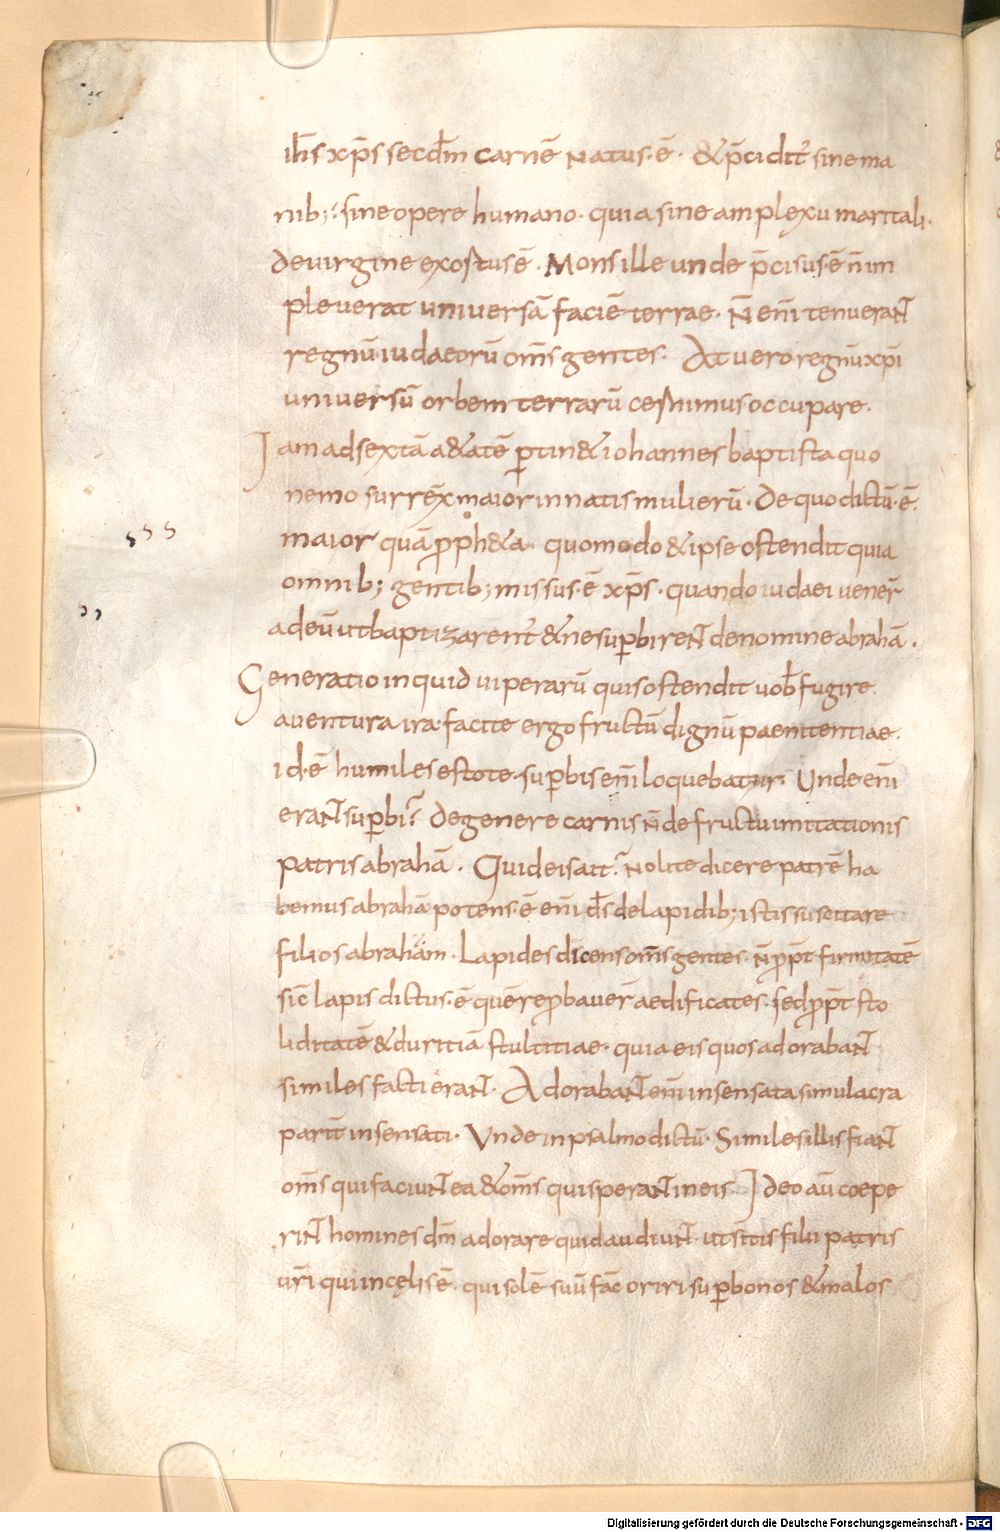 ih̅s xp̅s secd̅m carnē natus·ē· & p̅cidit̅ sine ma
nib;· sine opere humano· quia sine amplexu maritali·
de virgine exortus ē· Mons ille unde p̅cisus·ē n̅ im
pleverat universā faciē terrae· N̅ eni̅ tenuerant
regnū iudaeorū om̅s gentes· At vero regnū xp̅i
universū orbem terrarū cernimus occupare·
Iam ad sextā a&atē ꝑtin& iohannes baptista quo
nemo surrex̅ maior in natis mulierū· De quo dictū·ē·
maior quā proph&a· quomodo & ipse ostendit quia
omnib; gentib; missus·ē xp̅s· quando iudaei vener̅
ad eū ut baptizarent̅ & ne suꝑbirent de nomine abrahā·
Generatio inquid viperarū quis ostendit vob̅ fugire
a ventura ira· facite ergo fructū dignū paenitentiae·
id·ē humiles estote· suꝑbis eni̅ loquebatur· Unde eni̅
erant suꝑbi? de genere carnis n̅ de fructu imitationis
patris abrahā· Quid eis ait? Nolite dicere patrē ha
bemus abrahā potens·ē eni̅ d̅s de lapidib; istis suscitare
filios abrahām· Lapides dicens om̅s gentes· n̅ propt̅ firmitatē
sic̅ lapis dictus·ē quē reprobaver̅ aedificates· sed propt̅ sto
liditatē & duritiā stultitiae· quia eis quos adorabant
similes facti erant· Adorabant eni̅ insensata simulacra
parit̅ insensati· Unde in psalmo dictū· Similes illis fiant
om̅s qui faciunt ea & om̅s qui sperant in eis· Ideo aū coepe
rint homines dm̅ adorare quid audiunt· ut sitis filii patris
vr̅i qui in cęlis ē· qui solē suū fac̅ oriri suꝑ bonos & malos
Digitalisierung gefördert durch die Deutsche Forschungsgemeinschaft - DFG